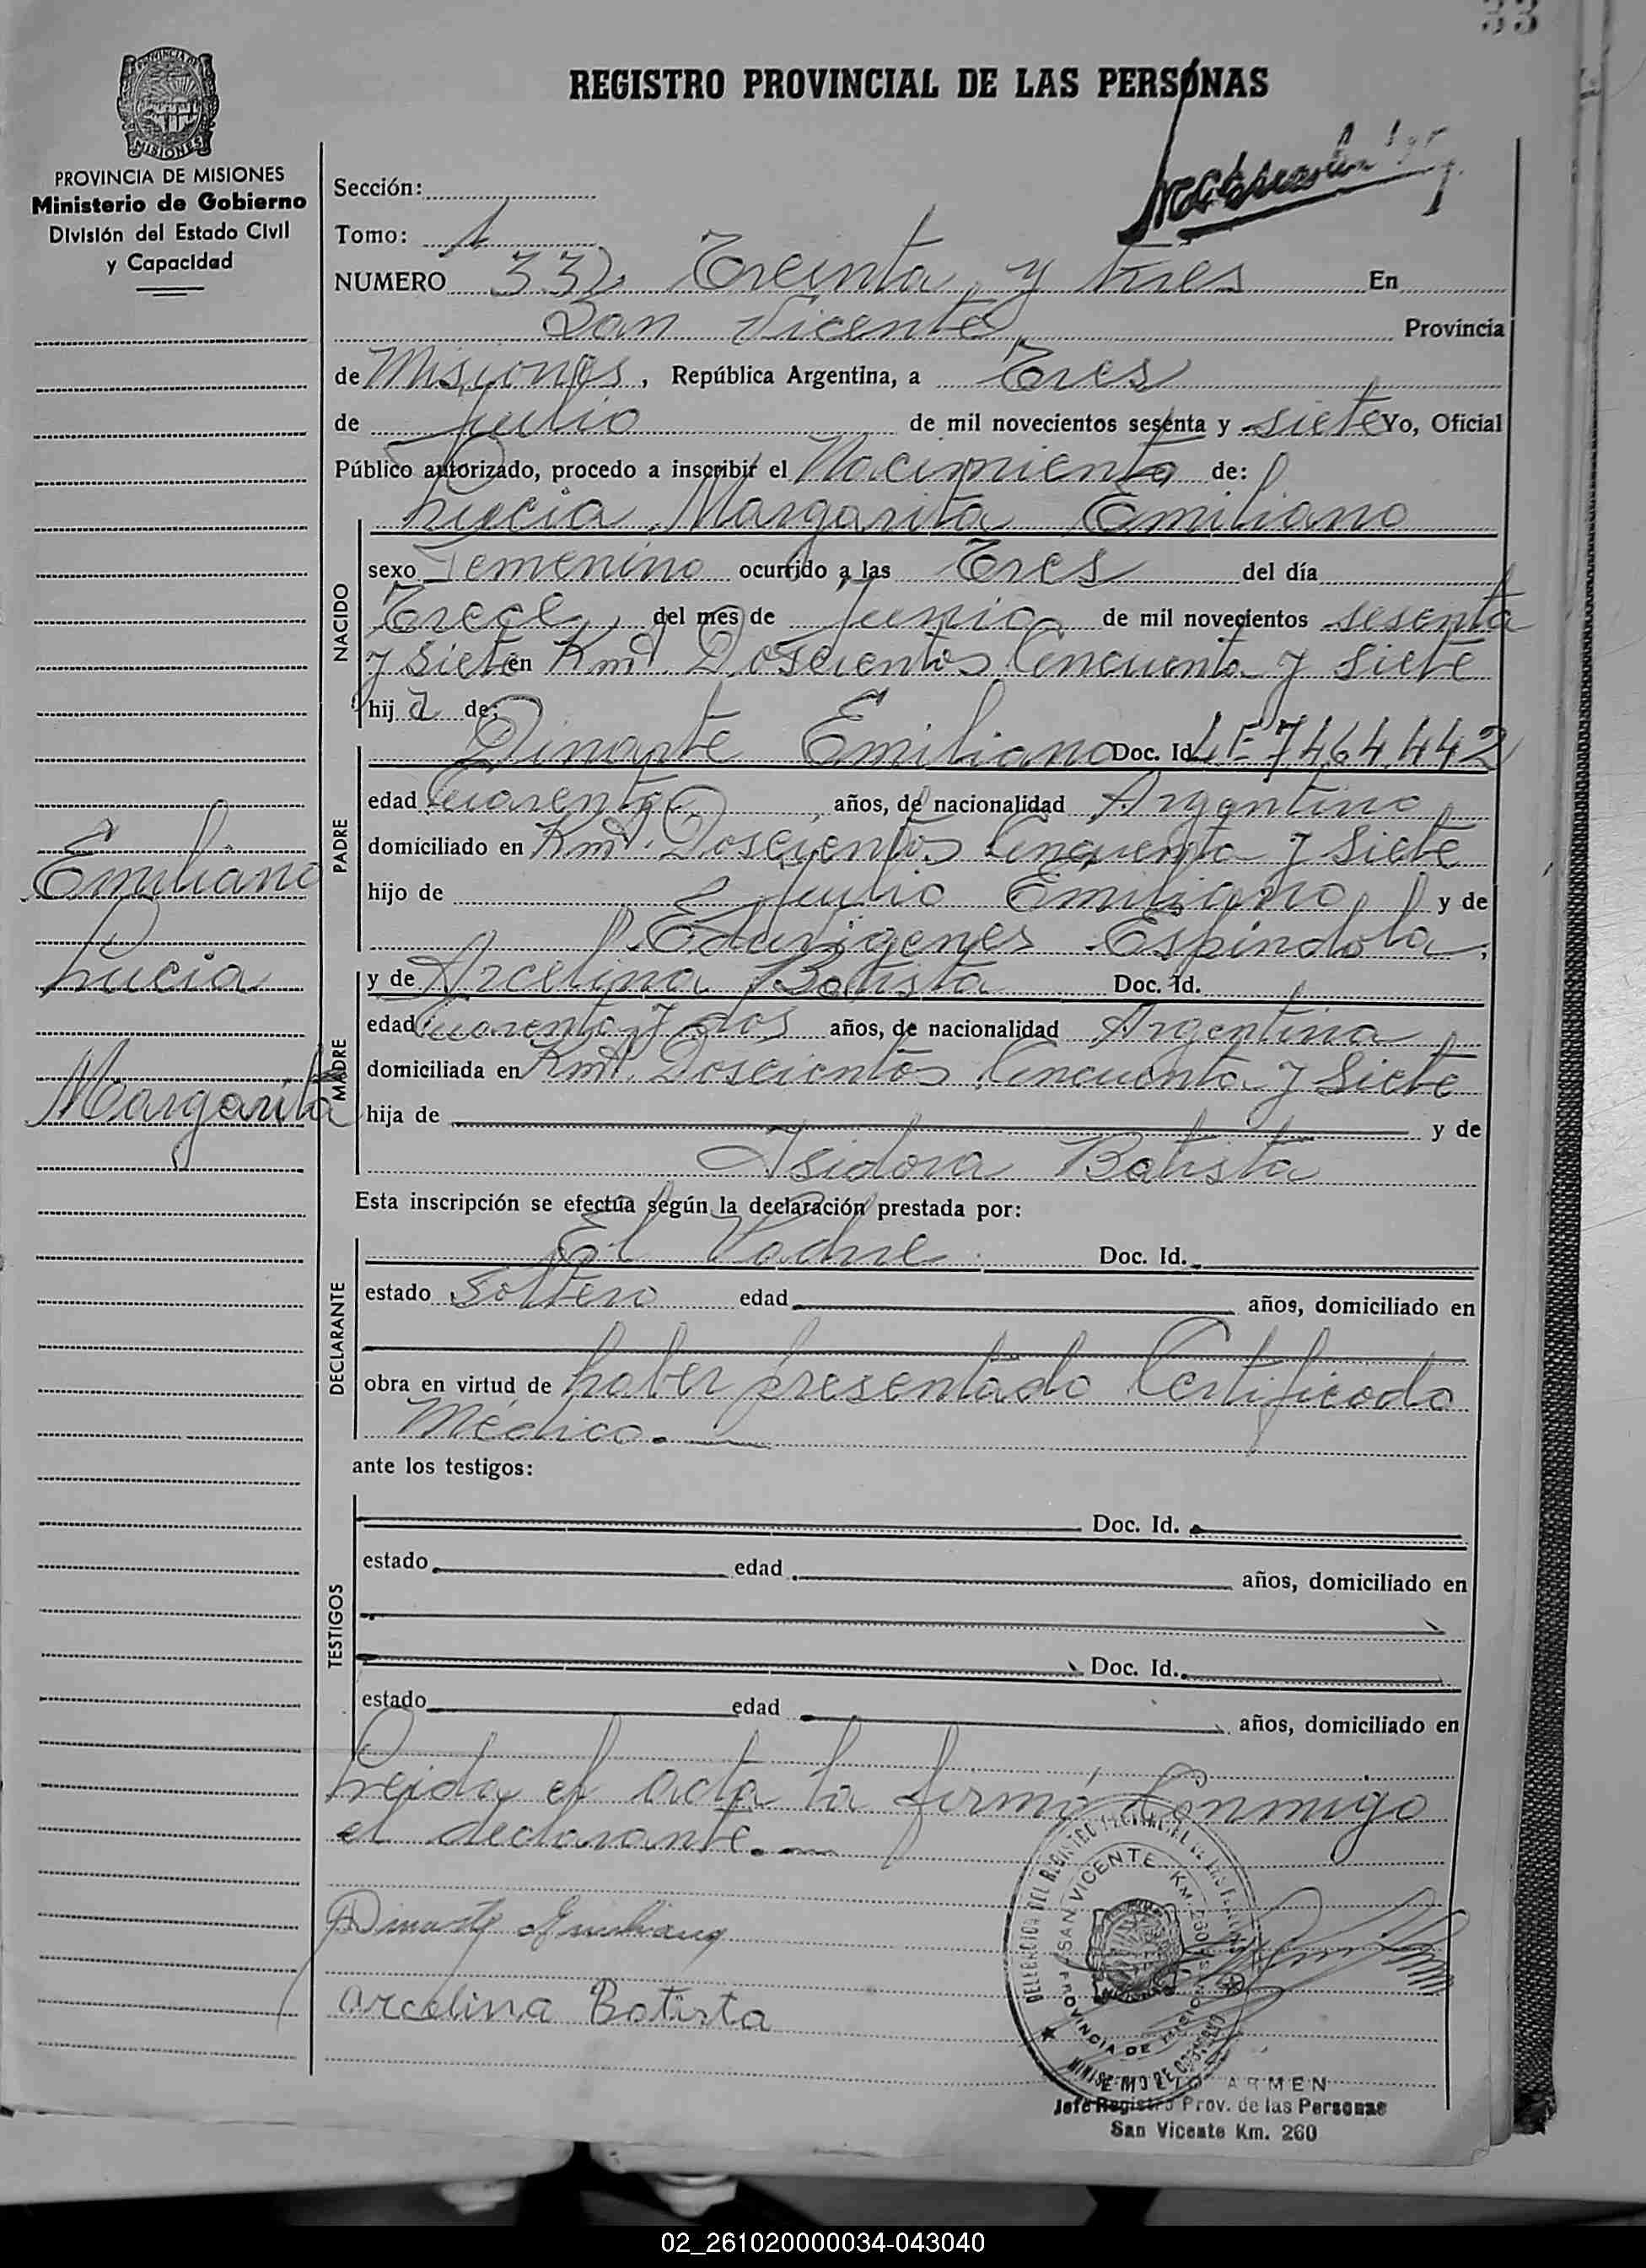 33
REGISTRO PROVINCIAL DE LAS PERSONAS
PROVINCIA DE MISIONES
Ministerio de Gobierno
División del Estado Civil
y Capacidad
Sección:
Tomo: 1
NUMERO 33 Treinta y tres En
San Vicente Provincia
de Misiones, República Argentina, a Tres
de Julio de mil novecientos sesenta y siete Yo, Oficial
Público autorizado, procedo a inscribir el Nacimiento de:
Lucia Margarita Emiliano
NACIDO
sexo Femenino ocurrido a las Tres del día
Trece, del mes de Junio de mil novecientos sesenta
y siete en Km. Doscientos Cincuenta y siete
hija de:
PADRE
Dinarte Emiliano Doc. Id. LE 7464442
edad Cuarenta años, de nacionalidad Argentino
domiciliado en Km. Doscientos Cincuenta y siete
hijo de Julio Emiliano y de
Eduvigenes Espindola,
MADRE
y de Arcelina Batista Doc. Id.
edad Cuarenta y dos años, de nacionalidad Argentina
domiciliada en Km. Doscientos Cincuenta y siete
hija de y de
Isidora Batista
Emiliano
Lucia
Margarita
Esta inscripción se efectúa según la declaración prestada por:
DECLARANTE
El Padre Doc. Id.
estado Soltero edad años, domiciliado en
obra en virtud de haber presentado Certificado
Médico.
ante los testigos:
TESTIGOS
Doc. Id.
estado edad años, domiciliado en
Doc. Id.
estado edad años, domiciliado en
Leida el acta la firmó Conmigo
el declarante.
Dinarte Emiliano
arcelina Batista
SAN VICENTE KM. 260
PROVINCIA DE MISIONES
MINISTERIO DE GOBIERNO
ARMEN
Jefe Registro Prov. de las Personas
San Vicente Km. 260
02_261020000034-043040